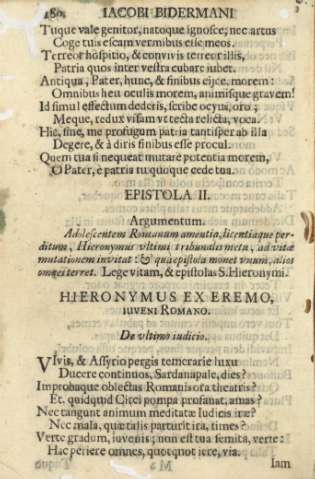 180. IACOBI BIDERMANI
Tuque vale genitor, natoque ignosce; nec artus
Coge tuis escam vermibus esse meos.
Terreor hospitio, & convivis terreor illis,
Patria quos inter vestra cubare iubet.
Antiqua, Pater, hunc, & finibus ejice, morem:
Omnibus heu oculis morem, animisque gravem!
Id simul effectum dederis, scribe ocyus, oro;
Meque, redux visam vt tecta relicta, voca.
Hic, sine, me profugum patria tantisper ab illa
Degere, & à diris finibus esse procul.
Quem tua si nequeat mutare potentia morem,
O Pater, è patria tu quoque cede tua.
EPISTOLA II.
Argumentum.
Adolescentem Romanum amentia, licentiaque per-
ditum, Hieronymus vltimi tribunalis metu, ad vitæ
mutationem invitat: & qua epistola monet vnum, alios
omnes terret. Lege vitam, & epistolas S. Hieronymi.
HIERONYMUS EX EREMO,
IUVENI ROMANO.
De vltimo iudicio.
VIvis, & Assyrio pergis temerarie luxu
Ducere continuos, Sardanapale, dies?
Improbaque oblectas Romanis ora theatris?
Et, quidquid Circi pompa profanat, amas?
Nec tangunt animum meditatæ Iudicis iræ?
Nec mala, quæ talis parturit ira, times?
Verte gradum, iuvenis; non est tua semita, verte:
Hac periere omnes, quotquot iere, via.
M 2 Iam